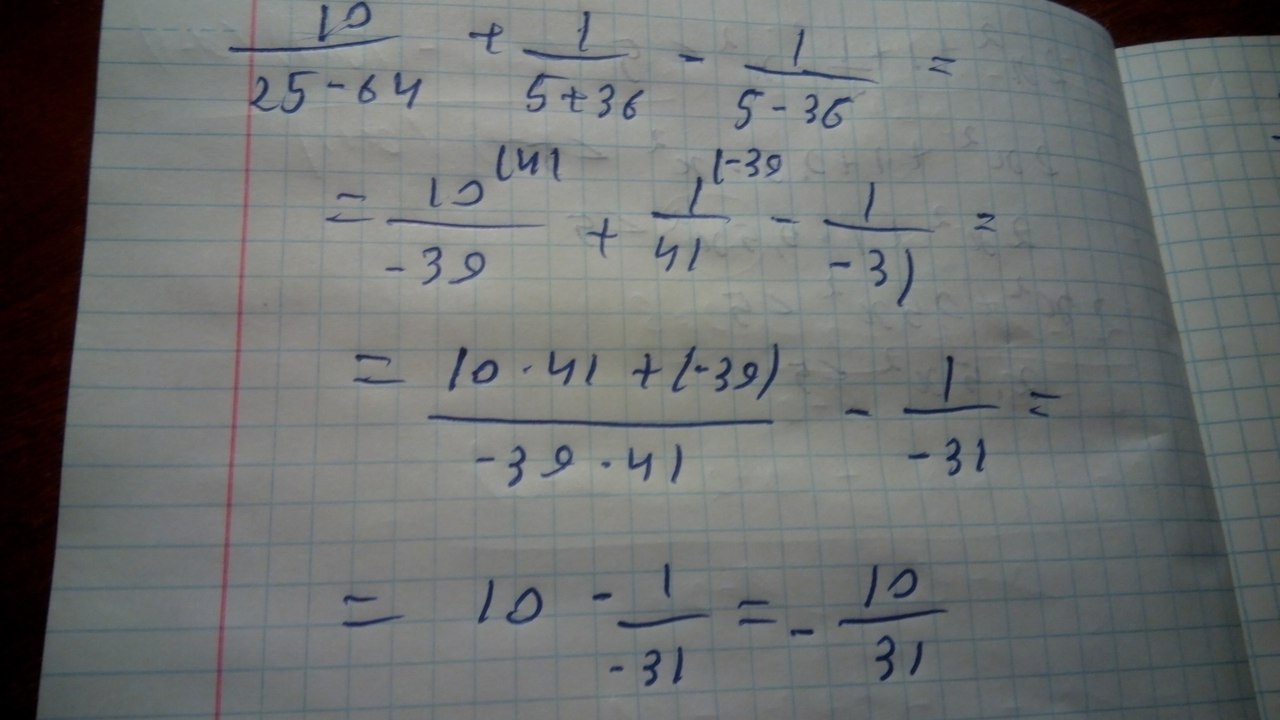 10/(25-64) + 1/(5+36) - 1/(5-36) =
= 10^(41/(-39) + 1^(-39/41 - 1/(-31) =
= (10·41+(-39))/(-39·41) - 1/(-31) =
= 10 - 1/(-31) = - 10/31